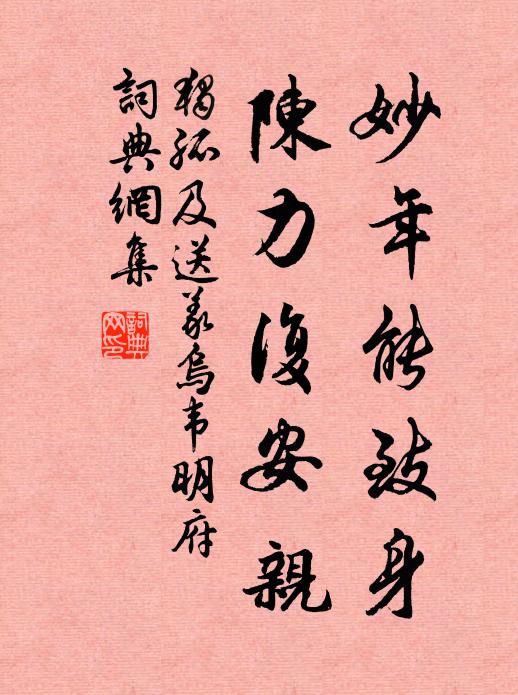 妙年能致身
陳力復安親
獨孤及送義烏韦明府
詞典網集
詞典网印